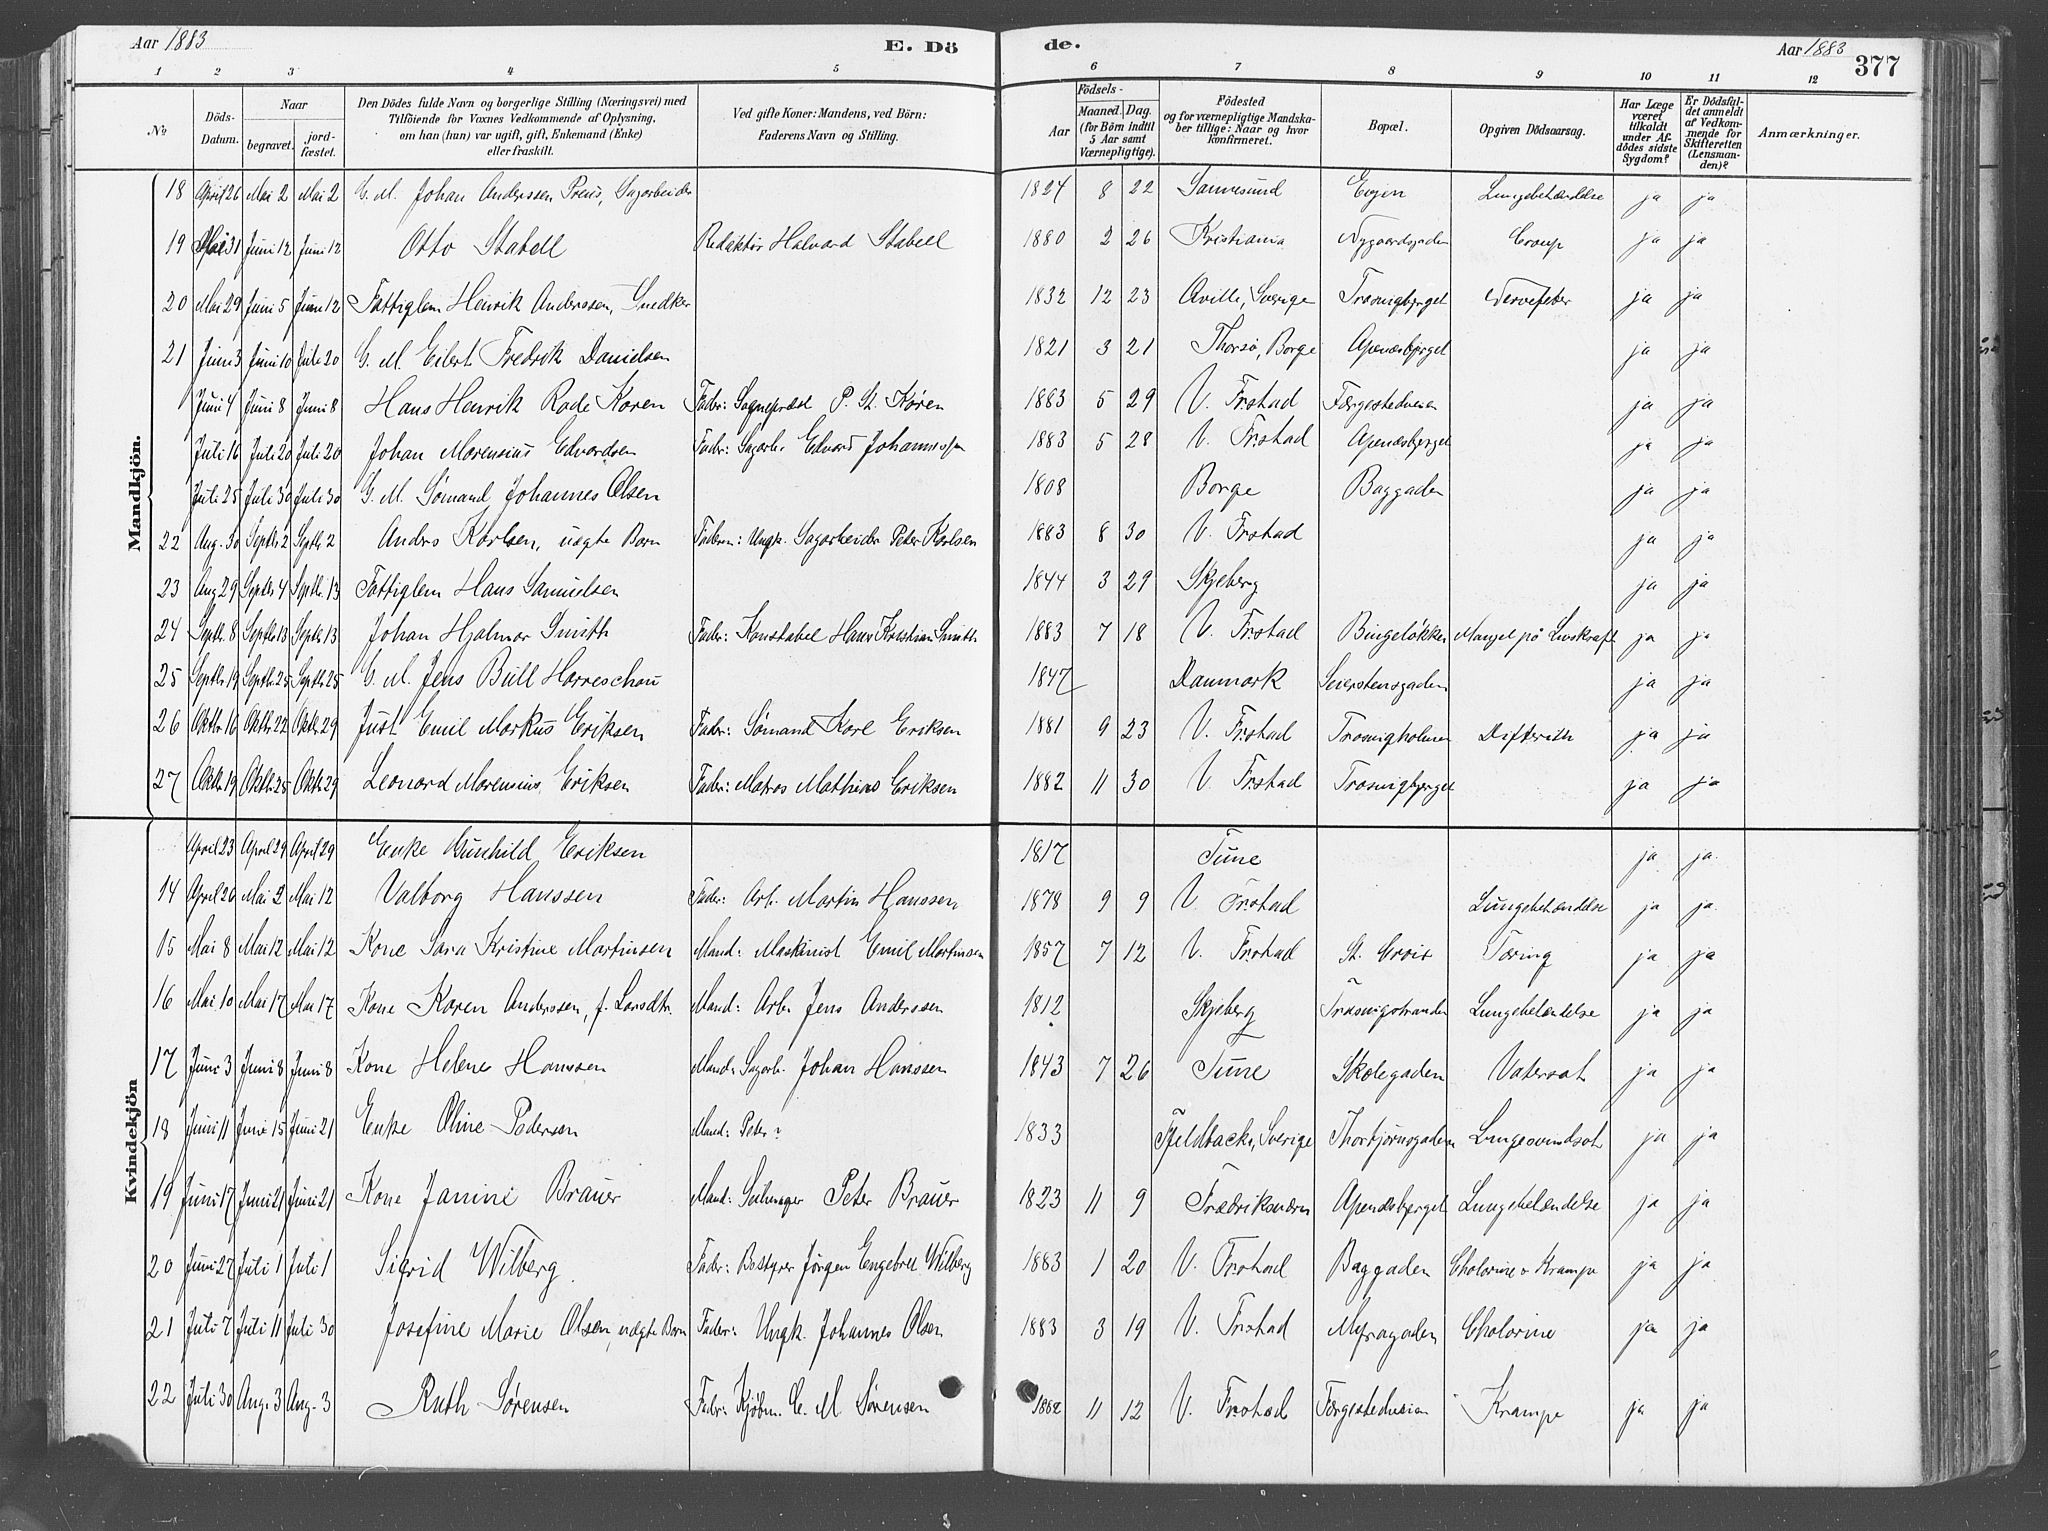 Aar 1883 E. Dö de. Aar 1883 377
1 2 3 4 5 6 7 8 9 10 11 12
No Döds-Datum. Naar begravet. jordfæstet. Den Dödes fulde Navn og borgerlige Stilling (Næringsvei) med Tilföiende for Voxnes Vedkommende af Oplysning, om han (hun) var ugift, gift, Enkemand (Enke) eller fraskilt. Ved gifte Koner: Mandens, ved Börn: Faderens Navn og Stilling. Aar Födsels- Maaned. Dag. (for Börn indtil 5 Aar samt Værnepligtige). Födested og for værnepligtige Mandskaber tillige: Naar og hvor konfirmeret. Bopæl. Opgiven Dödsaarsag. Har Læge været tilkaldt under Afdödes sidste Sygdom? Er Dödsfaldet anmeldt af Vedkommende for Skifteretten (Lensmanden)? Anmærkninger.
Mandkjön.
18 April 26 Mai 2 Mai 2 G. M. Johan Anderssen Preus, Sagarbeider 1824 8 22 Sannesund Evjen Lungebetændelse ja ja
19 Mai 31 Juni 12 Juni 12 Otto Stabell Redaktør Halvard Stabell 1880 2 26 Kristiania Nygaardsgaden Croup ja ja
20 Mai 29 Juni 5 Juni 12 Fattiglem Henrik Anderssen, Snedker 1832 12 23 Qville, Sverige Trosvigbjerget Nervefeber ja ja
21 Juni 3 Juni 10 Juli 20 G. M. Eilert Fredrik Danielsen 1821 3 21 Thorsø, Borge Apenæsbjerget ja ja
Juni 4 Juni 8 Juni 8 Hans Henrik Rode Koren Fader: Sognepræst P. St. Koren 1883 5 29 V. Frstad Færgestedveien ja ja
Juli 16 Juli 20 Juli 20 Johan Marensius Edvardsen Fader: Sagarb. Edvard Johannessen 1883 5 28 V. Frstad Apenæsbjerget ja ja
Juli 25 Juli 30 Juli 30 G. M. Sømand Johannes Olsen 1808 Borge Baggaden ja ja
22 Aug. 30 Septbr 2 Septbr 2 Anders Karlsen, uægte Barn Faderen: Ungk. Sagarbeider Peter Karlsen 1883 8 30 V. Frstad ja ja
23 Aug 29 Septbr 4 Septbr. 13 Fattiglem Hans Samuelsen 1844 3 29 Skjeberg ja ja
24 Septbr. 8 Septbr 13 Septbr 13 Johan Hjalmar Smith Fader: Konstabel Hans Kristian Smith 1883 7 18 V. Frstad Bingeløkken Mangel på Livskraft ja ja
25 Septbr. 19 Septbr. 25 Septbr 25 G. M. Jens Bull Harreschou 1847 Danmark ja ja
26 Oktbr 16 Oktbr 22 Oktbr 29 Just Emil Markus Eriksen Fader: Sømand Karl Eriksen 1881 9 23 V. Frstad Trosvigholmen Difterith ja ja
27 Oktbr 19 Oktbr 25 Oktbr 29 Leonard Marensius Eriksen Fader: Matros Mathias Eriksen 1882 11 30 V. Frstad Trosvigbjerget ja ja
Kvindekjön
April 23 April 29 April 29 Enke Gunhild Eriksen 1817 Tune ja ja.
14 April 26 Mai 2 Mai 12 Valborg Hanssen Fader: Arb. Martin Hanssen 1878 9 9 V. Frstad Lungebetændelse ja ja.
15 Mai 8 Mai 12 Mai 12 Kone Sara Kristine Martinsen Mand: Maskinist Emil Martinsen 1857 7 12 V. Frstad St. Croix Tæring ja ja
16 Mai 10 Mai 17 Mai 17 Kone Karen Anderssen, f. Larsdtr. Mand: Arb. Jens Anderssen 1812 Skjeberg Trosvigstranden Lungebetændelse ja ja
17 Juni 3 Juni 8 Juni 8 Kone Helene Hanssen Mand: Sagarb. Johan Hanssen 1843 7 26 Tune Skolegaden Vatersot ja ja
18 Juni 11 Juni 15 Juni 21 Enke Oline Pedersen Mand: Peter ? 1833 Fjeldbacka, Sverige Thorbjørnsgaden Lungesvindsot ja ja
19 Juni 17 Juni 21 Juni 21 Kone Janine Brauer Mand: Seilmager Peter Brauer 1823 11 9 Fredriksværn Apenæsbjerget Lungebetændelse ja ja
20 Juni 27 Juli 1 Juli 1 Sigrid Wilberg Fader: Bestyrer Jørgen Engebret Wilberg 1883 1 20 V. Frstad Baggaden Cholorine & Krampe ja ja
21 Juli 7 Juli 11 Juli 30 Josefine Marie Olsen, uægte Barn Fader: Ungk. Johannes Olsen 1883 3 19 V. Frstad Myragaden Cholorine ja ja
22 Juli 30 Aug. 3 Aug. 3 Ruth Sørensen Fader: Kjøbm. C. M Sørensen 1882 11 12 V. Frstad Færgestedveien Krampe ja ja